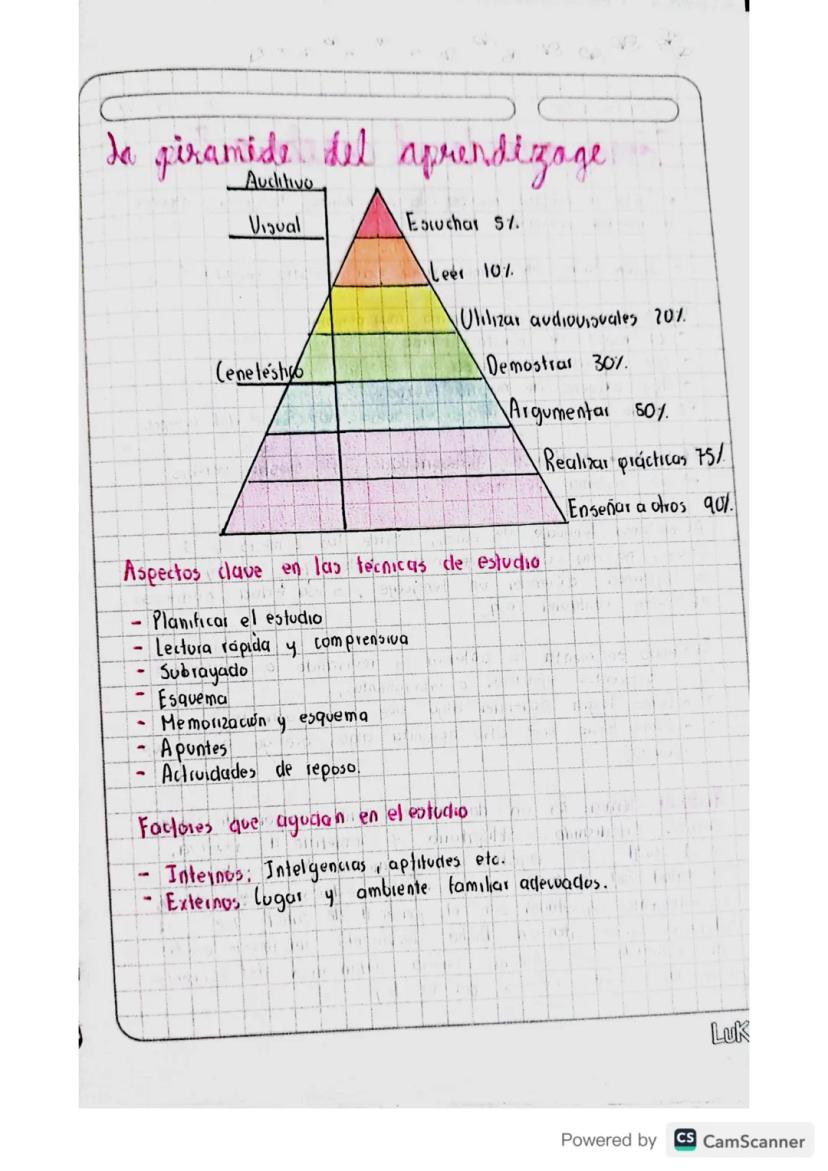 La piramide del aprendizage
Auditivo
Visual
Escuchar 5%.
Leer 10%.
Utilizar audiovisuales 20%.
Ceneléstico
Demostrar 30%.
Argumentar 50%.
Realizar prácticas 75%
Enseñar a otros 90%.
Aspectos clave en las técnicas de estudio
- Planificar el estudio
- Lectura rápida y comprensiva
- Subrayado
- Esquema
- Memorización y esquema
- Apuntes
- Actividades de reposo.
Factores que ayudan en el estudio
- Internos: Intelgencias, aptitudes etc.
- Externos Lugar y ambiente familiar adecuados.
LUK
Powered by CS CamScanner